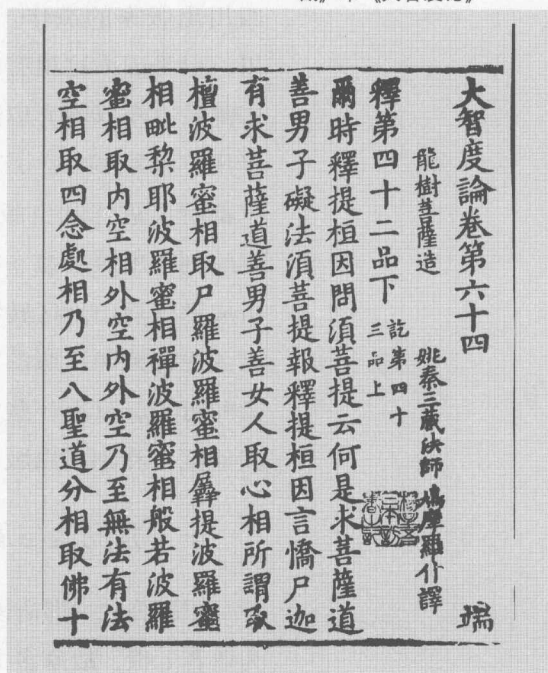 大智度論卷第六十四　端
龍樹菩薩造　姚秦三藏法師鳩摩羅什譯
釋第四十二品下　訖第四十三品上
爾時釋提桓因問須菩提云何是求菩薩道
善男子礙法須菩提報釋提桓因言憍尸迦
有求菩薩道善男子善女人取心相所謂取
檀波羅蜜相取尸羅波羅蜜相羼提波羅蜜
相毗梨耶波羅蜜相禪波羅蜜相般若波羅
蜜相取內空相外空內外空乃至無法有法
空相取四念處相乃至八聖道分相取佛十